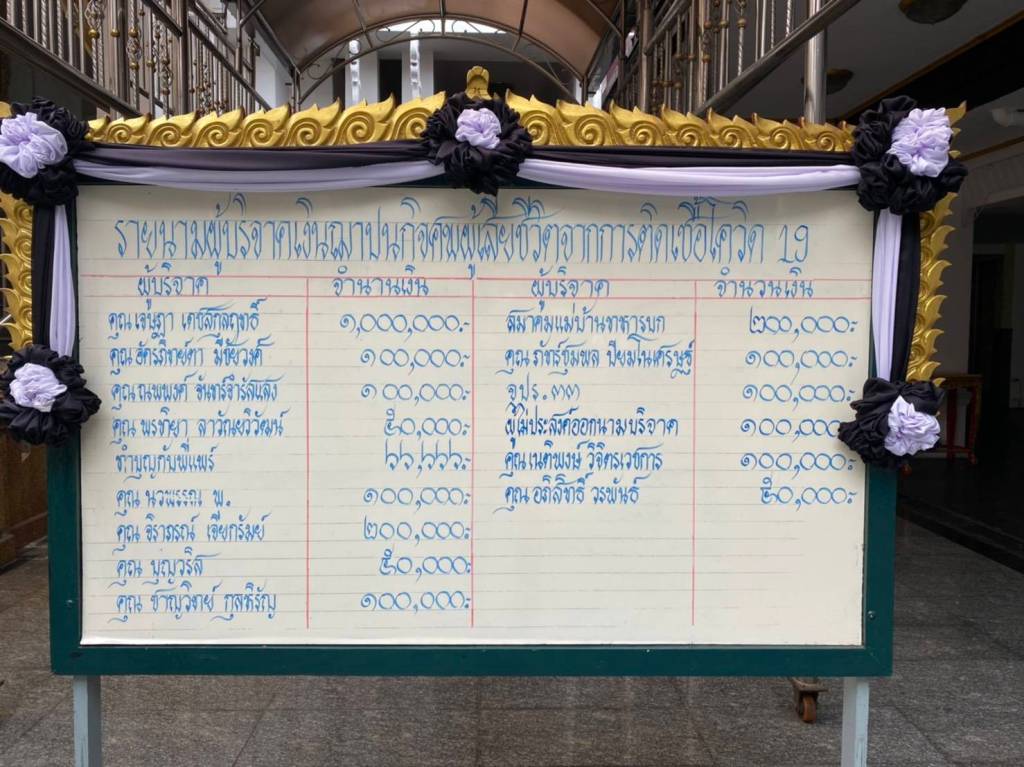 รายนามผู้บริจาคเงินฌาปนกิจศพผู้เสียชีวิตจากการติดเชื้อโควิด 19
ผู้บริจาค จำนวนเงิน ผู้บริจาค จำนวนเงิน
คุณเจษฎา เดชสกุลฤทธิ์ ๑,๐๐๐,๐๐๐.- สมาคมแม่บ้านทหารบก ๒๐๐,๐๐๐.-
มีชัยวงศ์ ๑๐๐,๐๐๐.- คุณ ปิยมโนเศรษฐ์ ๑๐๐,๐๐๐.-
คุณณพพงศ์ จันทร์จำรัสแสง ๑๐๐,๐๐๐.- จปร.๓๓ ๑๐๐,๐๐๐.-
คุณ พรทิยา ลาวัณยวิวัฒน์ ๕๐,๐๐๐.- ผู้ไม่ประสงค์ออกนามบริจาค ๑๐๐,๐๐๐.-
ทำบุญกับพี่แพร์ ๖๖,๖๖๖.- คุณเนติพงษ์ วิจิตรเวชการ ๑๐๐,๐๐๐.-
คุณ นวพรรณ พ. ๑๐๐,๐๐๐.- คุณ อภิสิทธิ์ วรพันธ์ ๕๐,๐๐๐.-
คุณ จิราภรณ์ เจียกรัมย์ ๒๐๐,๐๐๐.-
คุณ บุญวริส ๕๐,๐๐๐.-
คุณ ชาญวิทย์ กุลหิรัญ ๑๐๐,๐๐๐.-